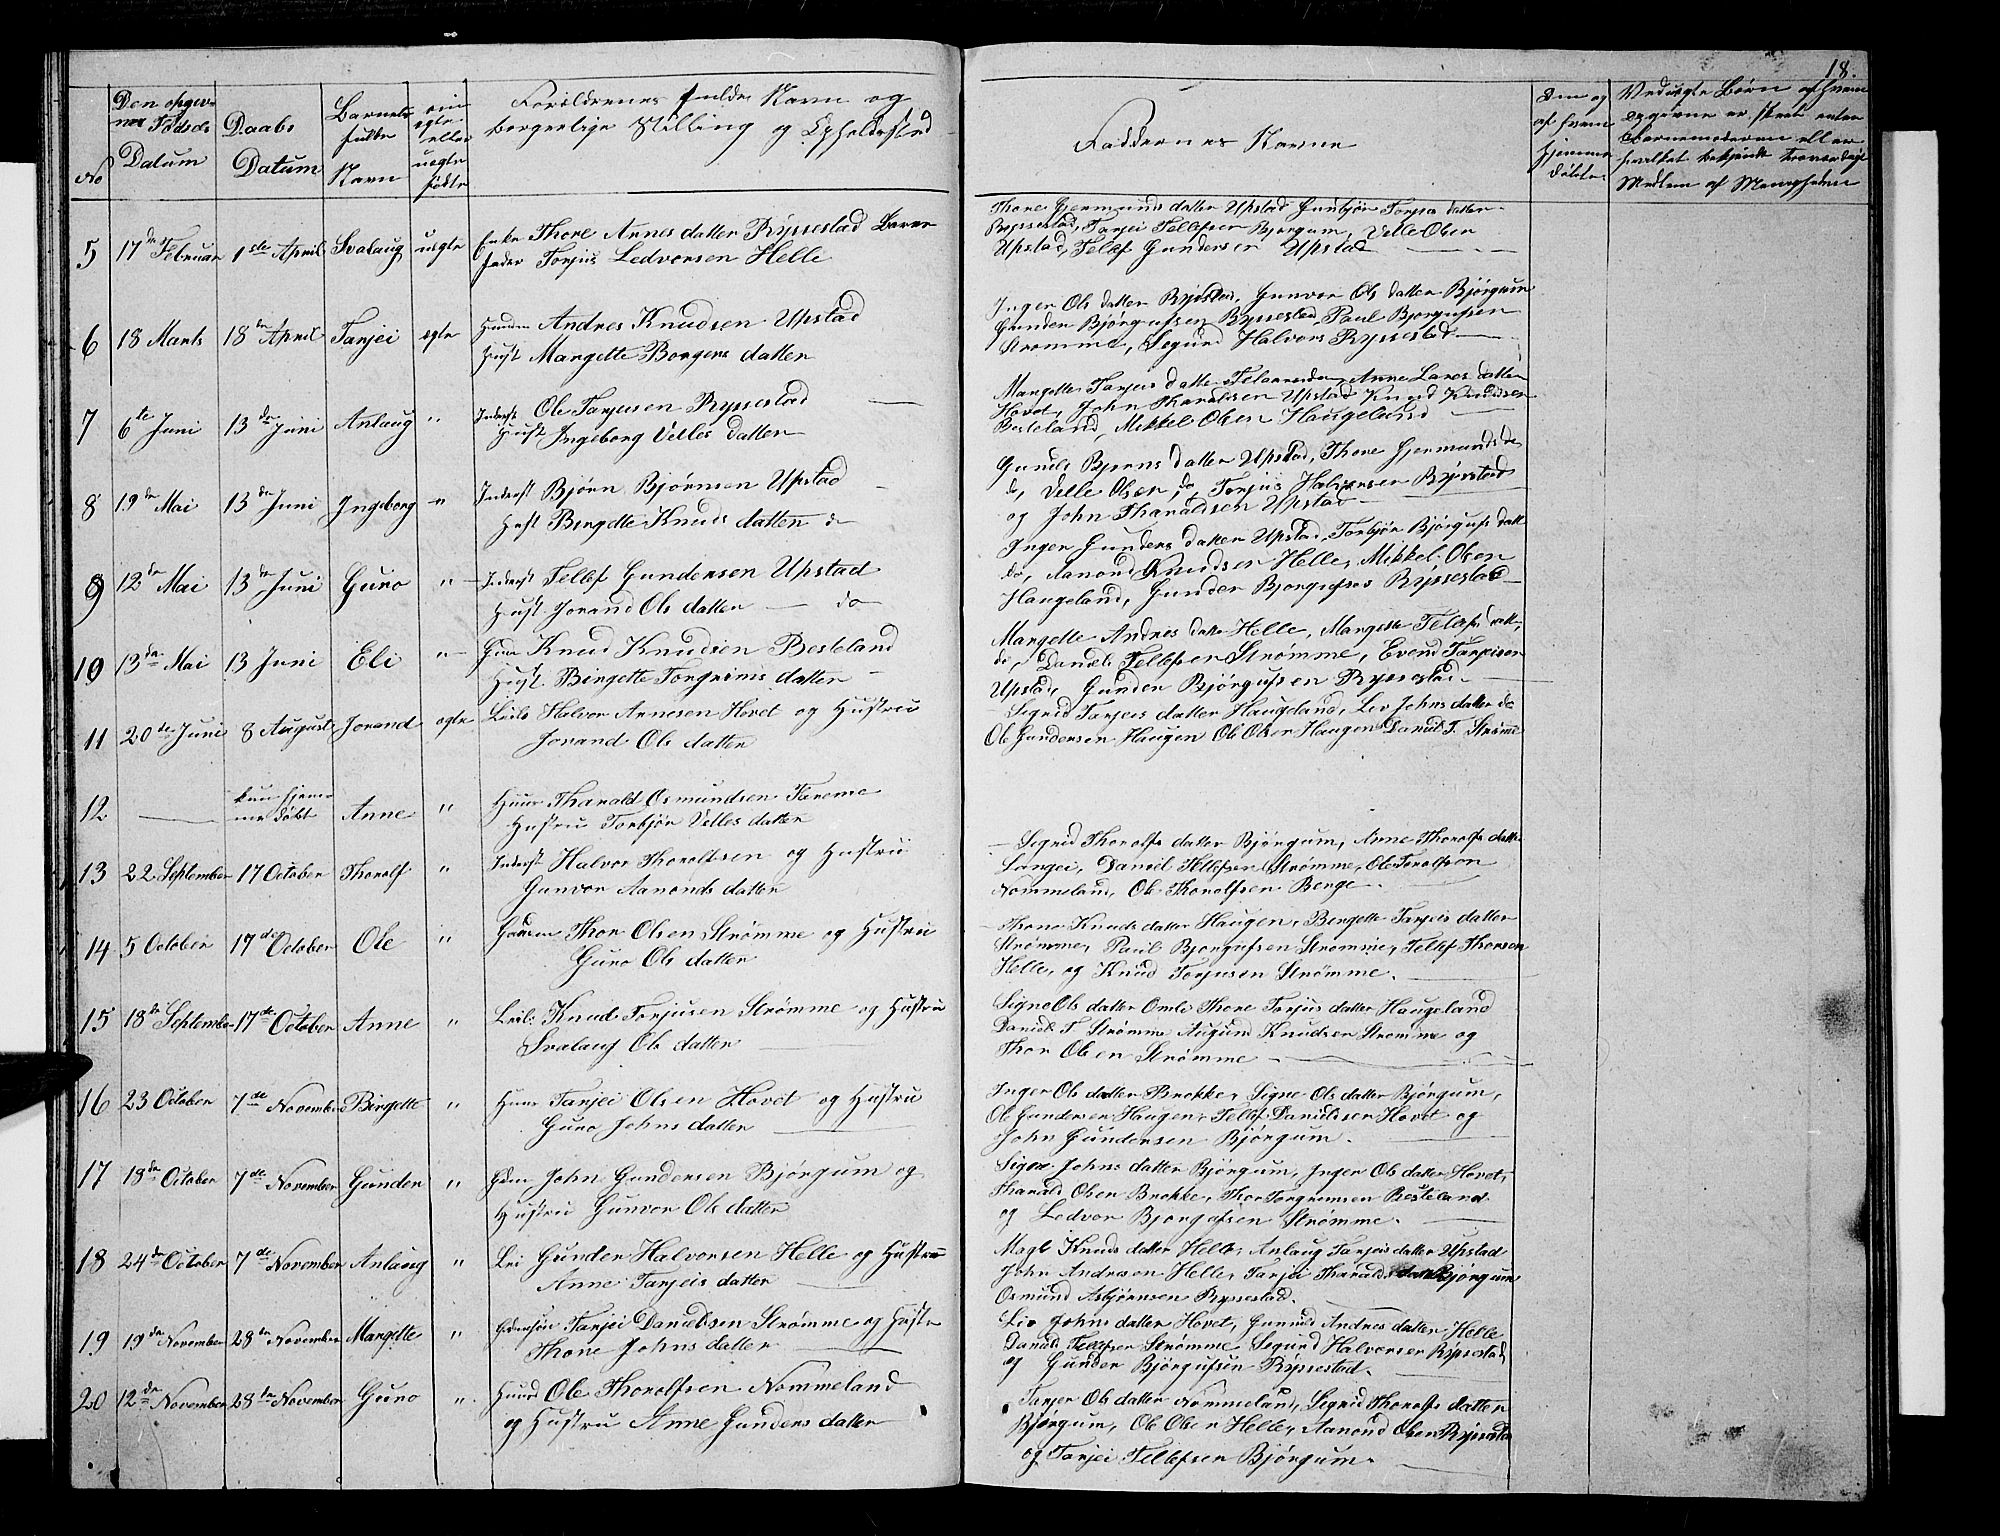 18.
No
Den opgiv-
ne Fødsels
Datum
Daabs
Datum
Barnets
fulde
Navn
om
egte
eller
uegte
fødte
Forældrenes fulde Navn og
borgerlige Stilling og Opholdssted
Faddernes Navne
Om og
af hvem
hjemme
døbte
Ved uegte Børn af hvem
Opgivne er skeet enten
Barnemoderen eller
hvilket bekjendt troværdigt
Medlem af Menigheden
5 17de Februar 1ste April Svalaug uegte Enke Thore Annes datter Ryssestad Barne
fader Torjus Ledvorsen Helle
Thore Gjermunds datter Upstad Gunbjør Torjus datter
Ryssestad, Tarjei Tellefsen Bjørgum, Velle Olsen
Upstad, Tellef Gundersen Upstad
6 18 Marts 18de April Tarjei egte Andres Knudsen Upstad
Hust Margette Borgers datter
Inger Ols datter Ryssestad, Gunvor Ols datter Bjørgum
Gunder Bjørgufsen Ryssestad, Paul Bjørgufsen
Strømme, Segurd Halvors Ryssestad
7 6te Juni 13de Juni Anlaug " Inderst Ole Tarjeisen Ryssestad
Hust Ingeborg Velles datter
Margette Tarjeis datter Anne Lavos datter
Hovet, John Tharaldsen Upstad Knud Knudsen
Besteland, Mikkel Olsen Haugeland
8 19de Mai 13de Juni Ingeborg " Inderst Bjørn Bjørnsen Upstad
Hust Birgette Knuds datter do
Gunild Bjørns datter Upstad, Thore Gjermunds da
do, Velle Olsen, do, Torjus Halvorsen Ryssestad
og John Tharaldsen Upstad
9 12de Mai 13de Juni Guro " Inderst Tellef Gundersen Upstad
Hust. Jorand Ols datter do
Inger Gunders datter Upstad, Torbjør Bjørgufs datt
do, Aanond Knudsen Helle, Mikkel Olsen
Haugeland, Gunder Bjørgufsen Ryssestad
10 13de Mai 13 Juni Eli " Knud Knudsen Besteland
Hust. Birgette Torgrims datter
Margette Andres datt Helle, Margette Tellefs datt,
do, Daniel Tellefsen Strømme, Evend Tarjeisen
Upstad, Gunder Bjørgufsen Ryssestad
11 20de Juni 8 August Jorand egte Leil Halvor Annesen Hovet og Hustru
Jorand Ols datter
Sigrid Tarjeis datter Haugeland, Liv Johns datter do
Ole Gundersen Haugen Ole Olsen Haugen Daniel T. Strømme
12 kun hjem-
me døbt Anne " Huus Tharald Osmundsen Fareme
Hustru Torbjør Velles datter
13 22 September 17 October Thorolf " Inderst Halvor Thorolfsen og Hustru
Gunvor Aanonds datter
Sigrid Thorolfs datter Bjørgum, Anne Thorolfs datter
Langei, Daniel Tellefsen Strømme, Ole Torolfson
Nommeland, Ole Thorolfsen Berge
14 5 October 17de October Ole " Thor Olsen Strømme og Hustru
Guro Ols datter
Thone Knuds datter Haugen, Bergette Tarjeis datter
Strømme, Paul Bjørgufsen Strømme, Tellef Thorsen
Helle, og Knud Torjusen Strømme.
15 18de September 17de October Anne " Leil: Knud Torjusen Strømme og Hustru
Svalaug Ols datter
Signe Ols datter Omli Thore Torjus datter Haugeland
Daniel T Strømme Augund Knudsen Strømme og
Thor Olsen Strømme
16 23 October 7de November Birgette " Huus Tarjei Olsen Hovet og Hustru
Guro Johns datter
Inger Ols datter Brokke, Signe Ols datter Bjørgum,
Ole Gundersen Haugen, Tellef Danielsen Hovet og
John Gundersen Bjørgum.
17 18de October 7de November Gunder " John Gundersen Bjørgum og
Hustru Gunvor Ols datter
Signe Johns datter Bjørgum, Inger Ols datter Hovet,
Tharald Olsen Brokke, Thor Torgrimsen Besteland
og Ledvor Bjørgufsen Strømme.
18 24de October 7de November Anlaug " Lei Gunder Halvorsen Helle og Hustru
Anne Tarjeis datter
Magl Knuds datter Helle, Anlaug Tarjeis datter Upstad
John Andresen Helle, Tarjei Tharalds Bjørgum
Osmund Asbjørnsen Ryssestad.
19 19de November 28de November Margitte " Tarjei Danielsen Strømme og Hustr
Thone Johns datter
Liv Johns datter Hovet, Gunnild Andres datter Helle
Daniel Tellefsen Strømme Segurd Halvorsen Ryssestad,
og Gunder Bjørgufsen Ryssestad.
20 12de November 28de November Guro " Huusd Ole Thorolfsen Nommeland
og Hustru Anne Gunders datter
Tarjer Ols datter Nommeland, Sigrid Thorolfs datter
Bjørgum, Ole Olsen Helle, Aanond Olsen Ryssestad
og Tarjei Tellefsen Bjørgum.